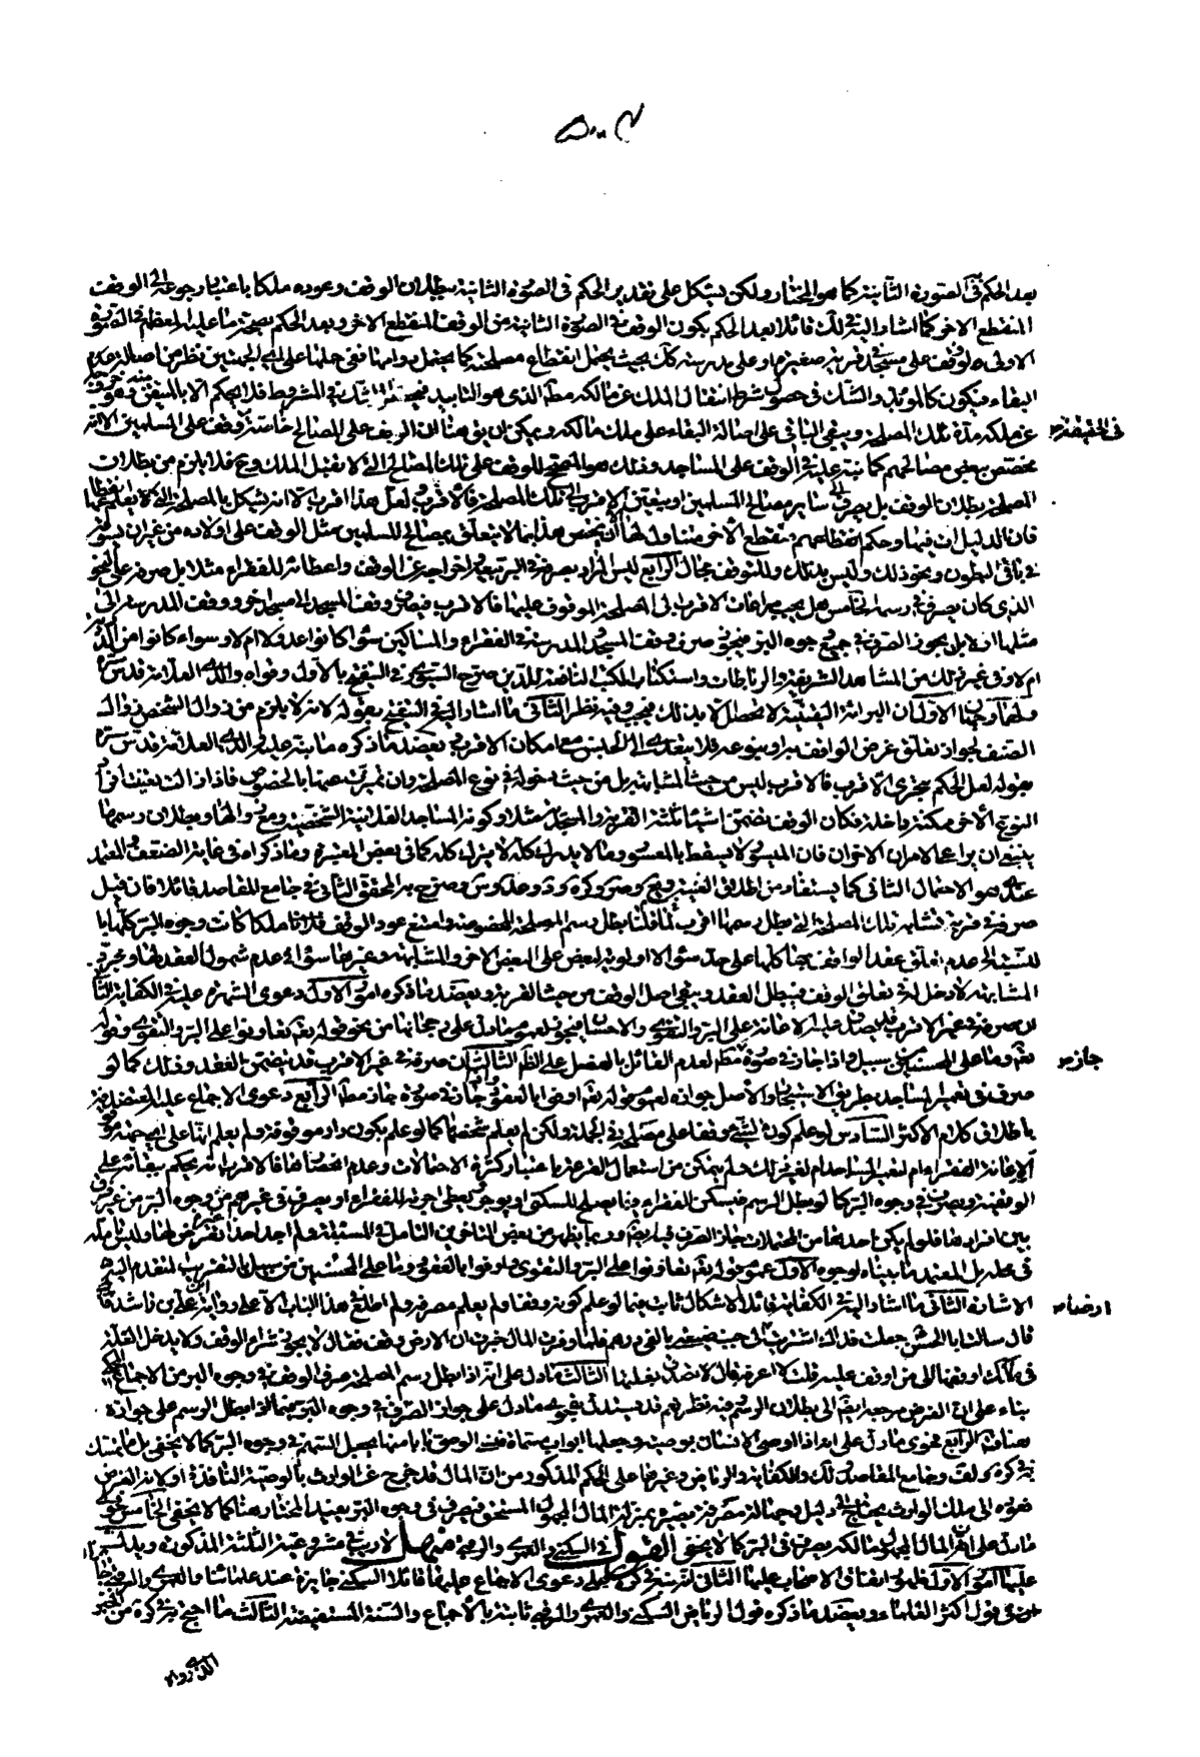 بعد الحكم في الصورة الثانية كما هو المختار ولكن يشكل على تقدير الحكم في الصورة الثانية ببطلان الوقف وعوده ملكا باعتبار رجوعه الى الوقف
المنقطع الاخر كما اشار اليه في لك قائلا بعد الحكم بكون الوقف في الصورة الثانية من الوقف المنقطع الاخر وبعد الحكم بصحة ما عليه المعظم في الصورة
الاولى لو وقف على مسجد في قرية صغيرة او على مدرسة كك بحيث يحتمل انقطاع مصلحته كما يحتمل دوامها ففي حملها على اى الجهتين نظر من اصالة
البقاء فيكون كالمؤبد والشك في حصول شرط انتقال الملك عن مالكه مطلقا الذي هو التابيد فيحصل الشك في المشروط فلا يحكم الا بالمتيقن وهو خروجه
عن ملكه مدة تلك المصلحة ويبقى الباقي على اصالة البقاء على ملك مالكه ويمكن ان يق هنا ان الوقف على المصالح خاصة وقف على المسلمين الا انه
في الحقيقة
مختص ببعض مصالحهم كما نبه عليه في الوقف على المساجد وذلك هو المصحح للوقف على تلك المصالح التي لا تقبل الملك وح فلا يلزم من بطلان
المصلحة بطلان الوقف بل يصرف الى ساير مصالح المسلمين او يتعين الاقرب الى تلك المصلحة فالاقرب لعل هذا اقرب الا انه يشكل بالمصلحة التي لا يعلم انقطاعها
فان الدليل ات فيها وحكم بعضهم منقطع الاخر متناول لها الا ان يخص هذا بما لا يتعلق بمصالح المسلمين مثل الوقف على اولاده من غير ان يسوقه
في باقي البطون ونحو ذلك وليس بذلك وللتوقف مجال الرابع ليس المراد بصرفه في البر تبعيد اخراجه عن الوقف واعطائه للفقراء مثلا بل صرفه على النحو
الذي كان يصرف في رسمه الخامس هل يجب مراعات الاقرب الى المصلحة الموقوف عليها فالاقرب فيصرف وقف المسجد الى مسجد اخر ووقف المدرسة الى
مثلها او لا بل يجوز الصرف في جميع وجوه البر فيجوز صرف وقف المسجد والمدرسة في الفقراء والمساكين سواء كانوا عدولا ام لا وسواء كانوا من
ام لا وفي غير ذلك من المشاهد الشريفة والرباطات واستكتاب الكتب النافعة للدين صرح الشهيد في التنقيح بالاول وقواه والدي العلامة قدس سره
ولهما وجهان الاول ان البرائة اليقينية لا تحصل الا بذلك فيجب وفيه نظر الثاني ما اشار اليه في التنقيح بقوله لانه لا يلزم من زوال الشخص زوال
الصنف لجواز تعلق غرض الواقف به او بنوعه فلا يتعدى الى الجنس مع امكان الاقرب ويعضد ما ذكره ما نبه عليه والدي العلامة قدس سره
بقوله لعل الحكم بتحرى الاقرب فالاقرب ليس من حيث المشابهة بل من حيث دخوله في نوع المصلحة وان تميزت عنها بالخصوص فاذا زالت بقيت افراد
النوع الاخر ممكنة داخلة فكان الوقف تضمن اشياء ثلثة القربة والمسجد مثلا وكونه المساجد الفلانية الشخصية ومع زوالها وبطلان رسمها
ينبغي ان يراعى الامران الاخران فان الميسور لا يسقط بالمعسور وما لا يدرك كله لا يترك كله كما في بعض المعتبرة وما ذكراه في غاية الضعف والمعتمد
عندي هو الاحتمال الثاني كما يستفاد من اطلاق الغنية ويع وصر وكره ود وعد وس وصرح به المحقق الثاني في جامع المقاصد قائلا فان قيل
صرفه في قربة تشابه تلك المصلحة التي بطل رسمها اقرب قلنا لما بطل رسم المصلحة المخصوصة وامتنع عود الوقف ملكا كانت وجوه البر كلها
بالنسبة الى عدم تعلق عقد الواقف بها كلها على حد سواء لا اولوية لبعض على البعض الاخر والمشابهة وغيرها سواء في عدم شمول العقد لها ومجرد
المشابهة لا دخل لها في تعلق الوقف فيبطل العقد ويبقى اصل الوقف من حيث القربة ويعضد ما ذكره امور الاول دعوى الشهرة عليه في الكفاية الثاني
ان صرفه في غير الاقرب قد يصدق عليه الاعانة على البر والتقوى والاحسان فيجوز لعموم ما دل على رجحانهما من نحو قوله تعم تعاونوا على البر والتقوى وقوله
تعم وما على المحسنين من سبيل واذا جاز في صورة جاز مطلقا لعدم القائل بالفصل على الظ الثالث ان صرفه في غير الاقرب قد يتضمن بالعقد وذلك كما لو
جاز في
صرف في تعمير المساجد بطريق الاستيجار والاصل جوازه لعموم قوله تعم اوفوا بالعقود واذا جاز في صورة جاز مطلقا الرابع دعوى الاجماع عليه المعتضدة
باطلاق كلام الاكثر السادس لو علم كون الشيء موقوفا على مصلحة في الجملة ولكن لم يعلم شخصها كما لو علم بكون دار موقوفة ولم يعلم انها على اى جهة
الاعانة الفقراء ام لتعمير المساجد ام لغير ذلك ولم يتمكن من استعمال القرعة باعتبار كثرة الاحتمالات وعدم انحصارها فالاقرب انه يحكم ببقائه على
الوقفية ويصرف في وجوه البر كما لو بطل الرسم فيسكن الفقراء فيما يصلح للسكنى او يوجر ويعطى اجرته للفقراء او يصرف في غيرهم من وجوه البر من غير فرق
بين افرادها فلو لم يكن احدها من المحتملات جاز الصرف فيه ايضا وربما يظهر من بعض المتاخرين التامل في المسئلة ولم اجد احدا تعرض لها وليس
في محله بل المعتمد ما بيناه لوجوه الاول عموم قوله تعم تعاونوا على البر والتقوى واوفوا بالعقود وما على المحسنين من سبيل بالتقريب المتقدم اليه
الاشارة الثاني ما اشار اليه في الكفاية قائلا لا اشكال ثابت فيما لو علم كونه وقفا ولم يعلم مصرفه ولم اطلع في هذا الباب الا على رواية علي بن راشد
ارضا
قال سالت ابا الحسن جعلت فداك اشتريت الى جنب ضيعتي بالفي درهم فلما وفرت المال خبرت ان الارض وقف فقال لا يجوز شراء الوقف ولا تدخل الغلة
في مالك ادفعها الى من اوقف عليه قلت لا اعرف قال تصدق بغلتها الثالث ما دل على انه اذا بطل رسم المصلحة صرف الوقف في وجوه البر من الاجماع
بناء على ان الفرض مرجعه ايضا الى بطلان الرسم وفيه نظر نعم قد يستدل بفحوى ما دل على جواز الصرف في وجوه البر فيما اذا بطل الرسم على جوازه
هنا فتامل الرابع فحوى ما دل على انه اذا اوصى الانسان بوصية وجعلها ابوابا مسماة فنسى الوصي بابا منها يجعل السهم في وجوه البر كما لا يخفى بل ما تمسك
في كره ولف وجامع المقاصد ولك والكفاية والرياض وغيرها على الحكم المذكور من ان المال قد خرج عن الوارث بالوصية النافذة اولا اذ الغرض
عوده الى ملك الوارث يحتاج الى دليل وجهالة مصرفه يصيره بمنزلة المال المجهول المستحق فيصرف في وجوه البر بعينه المختار هنا كما لا يخفى الخامس
ما دل على ان المال المجهول مالكه يصرف في البر كما لا يخفى القول في السكنى والعمرى والرقبى منهل لا ريب في مشروعية الثلثة المذكورة ويدل
عليها امور الاول ظهور اتفاق الاصحاب عليها الثاني انه نبه في كره على دعوى الاجماع عليها قائلا السكنى جايزة عند علمائنا والعمرى والرقبى جايزتان
عند في قول اكثر العلماء ويعضد ما ذكره قول الرياض السكنى والعمرى والرقبى ثابتة بالاجماع والسنة المستفيضة الثالث ما احتج به في كره من